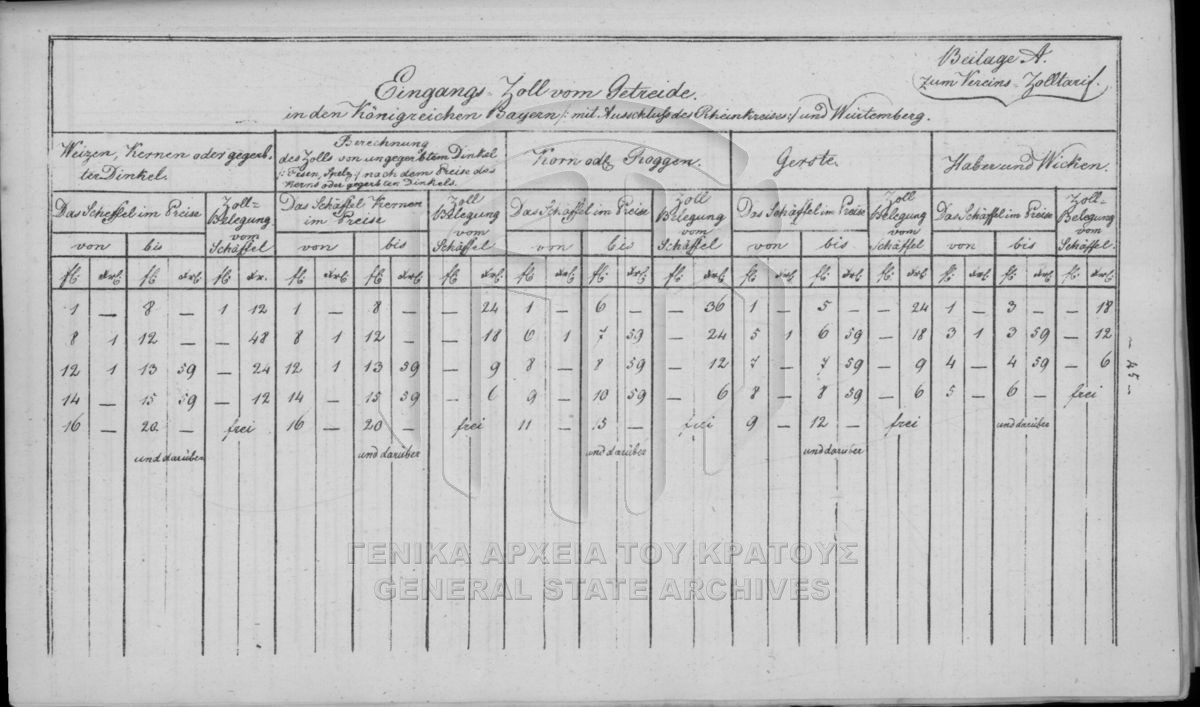 Beilage A.
zum Vereins-Zolltarif.
Eingangs-Zoll vom Getreide.
in den Königreichen Bayern /: mit Ausschluß des Rheinkreises :/ und Würtemberg.
Weizen, Kernen oder gegerb-
ter Dinkel.
Berechnung
des Zolls von ungegerbtem Dinkel
/: Fesen, Spelz :/ nach dem Preise des
Kerns oder gegerbten Dinkels.
Korn od. Roggen.
Gerste.
Haber und Wicken.
Das Scheffel im Preise
Zoll-
Belegung
vom
Schäffel
Das Schäffel Kernen
im Preise
Zoll
Belegung
vom
Schäffel
Das Schäffel im Preise
Zoll
Belegung
vom
Schäffel
Das Schäffel im Preise
Zoll
Belegung
vom
Schäffel
Das Schäffel im Preise
Zoll-
Belegung
vom
Schäffel.
von bis von bis von bis von bis von bis
fl. xr. fl. xr. fl. xr. fl. xr. fl. xr. fl. xr. fl. xr. fl. xr. fl. xr. fl. xr. fl. xr. fl. xr. fl. xr. fl. xr. fl. xr.
1 — 8 — 1 12 1 — 8 — — 24 1 — 6 — — 36 1 — 5 — — 24 1 — 3 — — 18
8 1 12 — — 48 8 1 12 — — 18 6 1 7 59 — 24 5 1 6 59 — 18 3 1 3 59 — 12
12 1 13 59 — 24 12 1 13 59 — 9 8 — 8 59 — 12 7 — 7 59 — 9 4 — 4 59 — 6
14 — 15 59 — 12 14 — 15 59 — 6 9 — 10 59 — 6 8 — 8 59 — 6 5 — 6 — frei
16 — 20 — frei 16 — 20 — frei 11 — 15 — frei 9 — 12 — frei und darüber
und darüber und darüber und darüber und darüber
ΓΕΝΙΚΑ ΑΡΧΕΙΑ ΤΟΥ ΚΡΑΤΟΥΣ
GENERAL STATE ARCHIVES